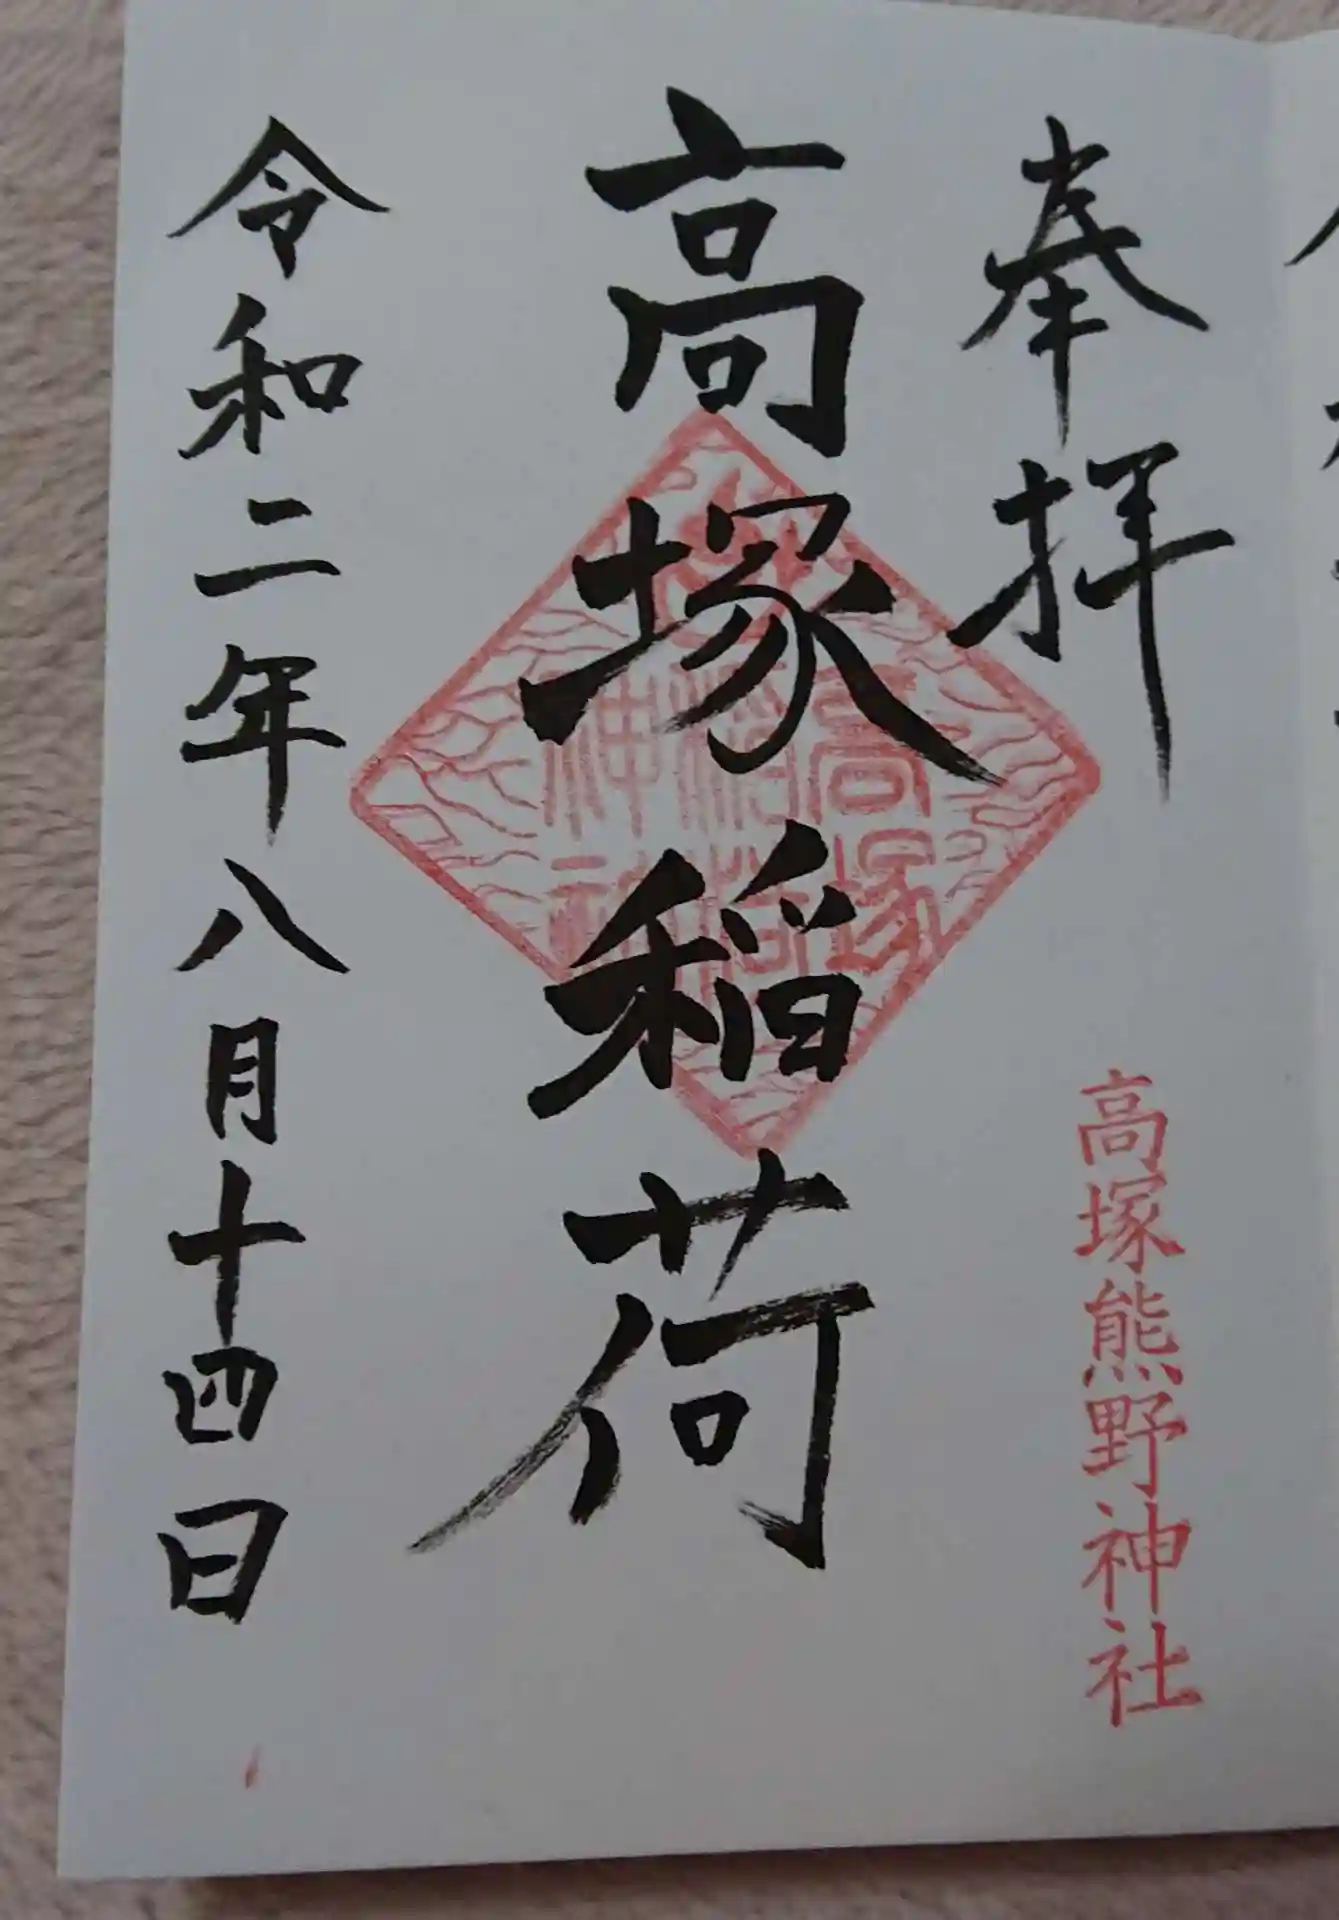 奉拝
高塚熊野神社
高塚稲荷
高塚
稲荷
神社
令和二年八月十四日